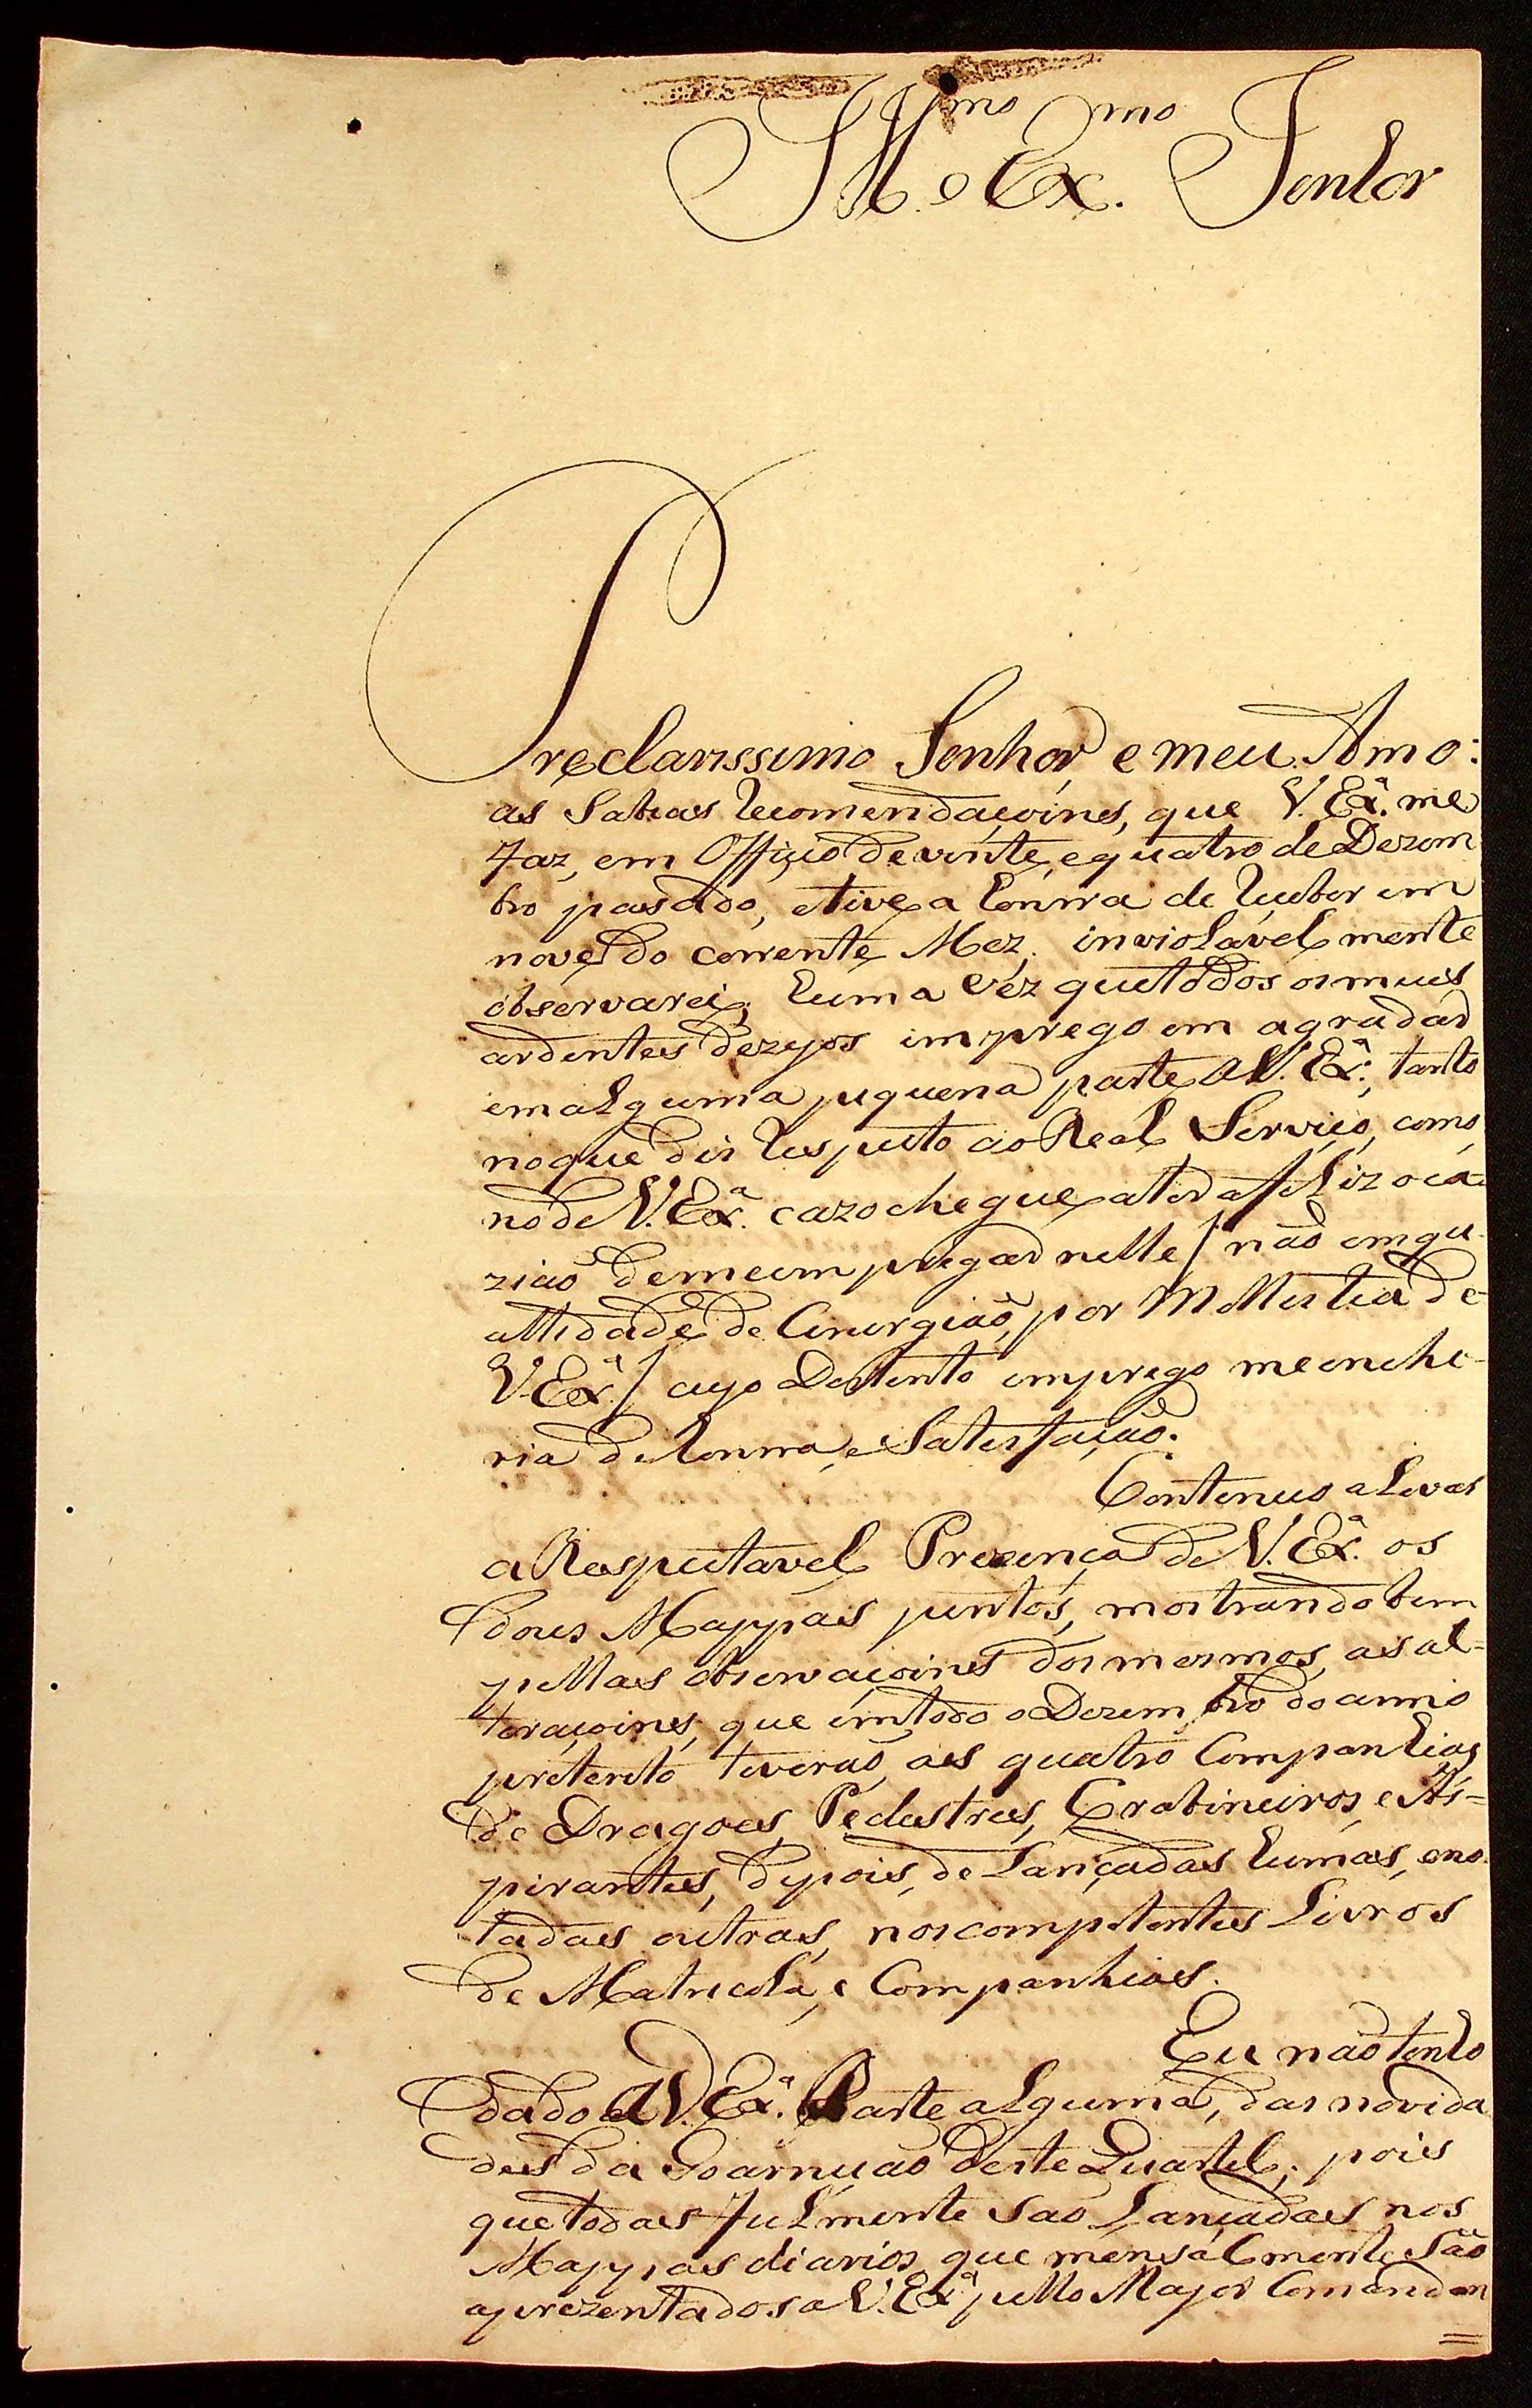 Ill.mo e Ex.mo Senhor
Preclarissimo Senhor, e meu Amo:
as Sabias recomendaçoins, que V. Ex.ª me
faz, em Officio de vinte, e quatro de Dezem
bro pasado, e tive a honrra de receber em
nove do corrente Mez, inviolavelmente
observarei; huma vez que todos os meus
ardentes dezejos imprego em agradar
em alguma piquena parte a V. Ex.ª, tanto
no que diz respeito ao Real Serviço, como
no de V. Ex.ª cazo chegue a ter a feliz oca
zião de me impregar nelle / não em qu
allidade de Cirurgião, por Mollestia de
V. Ex.ª / cujo Destinto imprego me enche-
ria de honrra, e Satisfação.
Continuo a Levar
a Respeitavel Prezença de V. Ex.ª os
dous Mappas juntos, mostrando bem
pellas observaçoins dos mesmos, as al=
teraçoins, que em todo o Dezembro do anno
preterito tiverão as quatro Companhias
de Dragoes, Pedestres, Crabineiros, e As=
pirantes, depois de Lançadas humas, e no
tadas outras, nos competentes Livros
de Matricola, e Companhias.
Eu não tenho
dado a V. Ex.ª Parte alguma, das novida
des da Goarnição deste Quartel; pois
que todas fielmente são Lançadas nos
Mappas diarios, que mensalmente são
aprezentados a V. Ex.ª pello Major Comandan
=